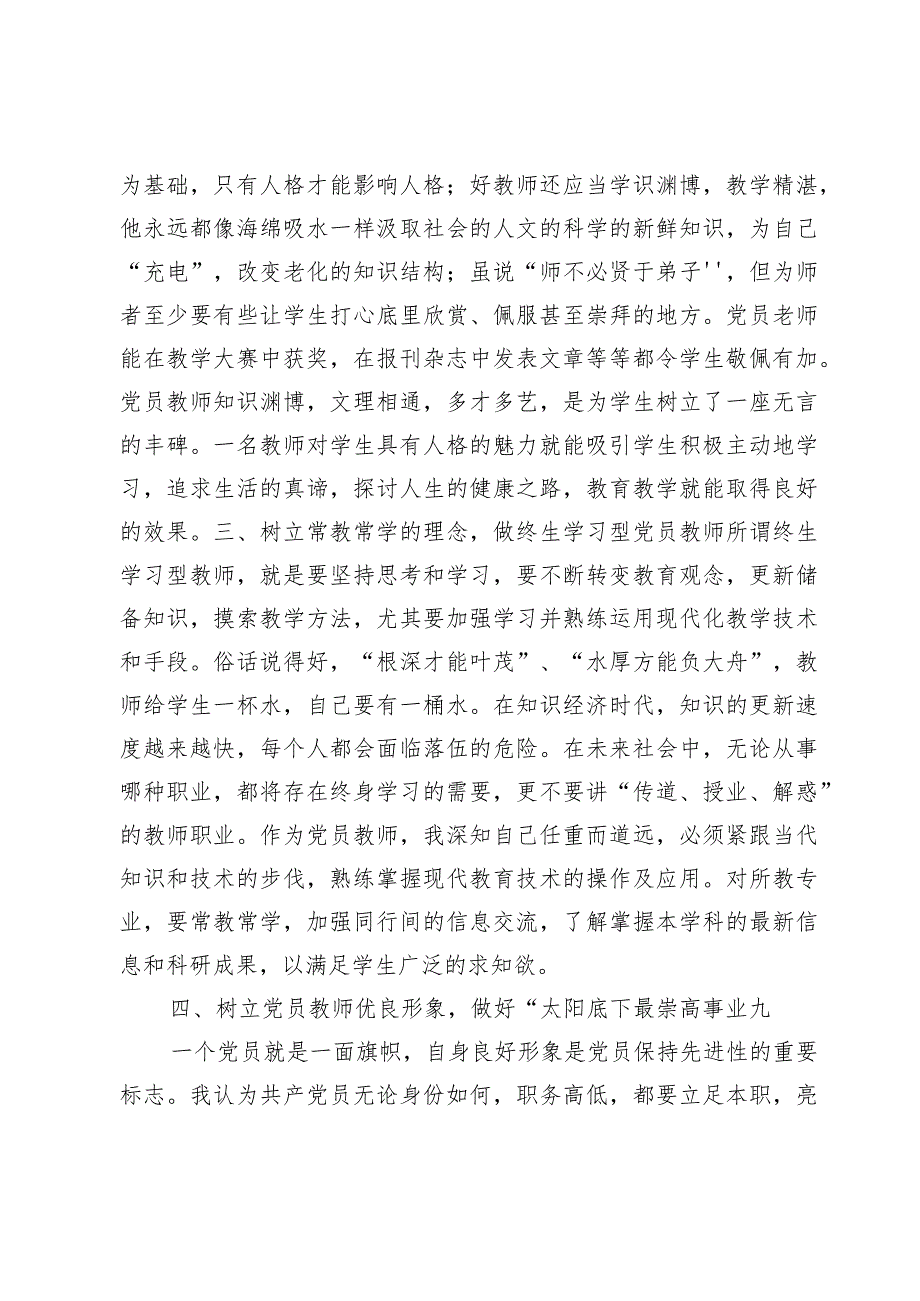 为基础，只有人格才能影响人格；好教师还应当学识渊博，教学精湛，
他永远都像海绵吸水一样汲取社会的人文的科学的新鲜知识，为自己
“充电”，改变老化的知识结构；虽说“师不必贤于弟子''，但为师
者至少要有些让学生打心底里欣赏、佩服甚至崇拜的地方。党员老师
能在教学大赛中获奖，在报刊杂志中发表文章等等都令学生敬佩有加。
党员教师知识渊博，文理相通，多才多艺，是为学生树立了一座无言
的丰碑。一名教师对学生具有人格的魅力就能吸引学生积极主动地学
习，追求生活的真谛，探讨人生的健康之路，教育教学就能取得良好
的效果。三、树立常教常学的理念，做终生学习型党员教师所谓终生
学习型教师，就是要坚持思考和学习，要不断转变教育观念，更新储
备知识，摸索教学方法，尤其要加强学习并熟练运用现代化教学技术
和手段。俗话说得好，“根深才能叶茂”、“水厚方能负大舟”，教
师给学生一杯水，自己要有一桶水。在知识经济时代，知识的更新速
度越来越快，每个人都会面临落伍的危险。在未来社会中，无论从事
哪种职业，都将存在终身学习的需要，更不要讲“传道、授业、解惑”
的教师职业。作为党员教师，我深知自己任重而道远，必须紧跟当代
知识和技术的步伐，熟练掌握现代教育技术的操作及应用。对所教专
业，要常教常学，加强同行间的信息交流，了解掌握本学科的最新信
息和科研成果，以满足学生广泛的求知欲。
四、树立党员教师优良形象，做好“太阳底下最崇高事业九
一个党员就是一面旗帜，自身良好形象是党员保持先进性的重要
标志。我认为共产党员无论身份如何，职务高低，都要立足本职，亮